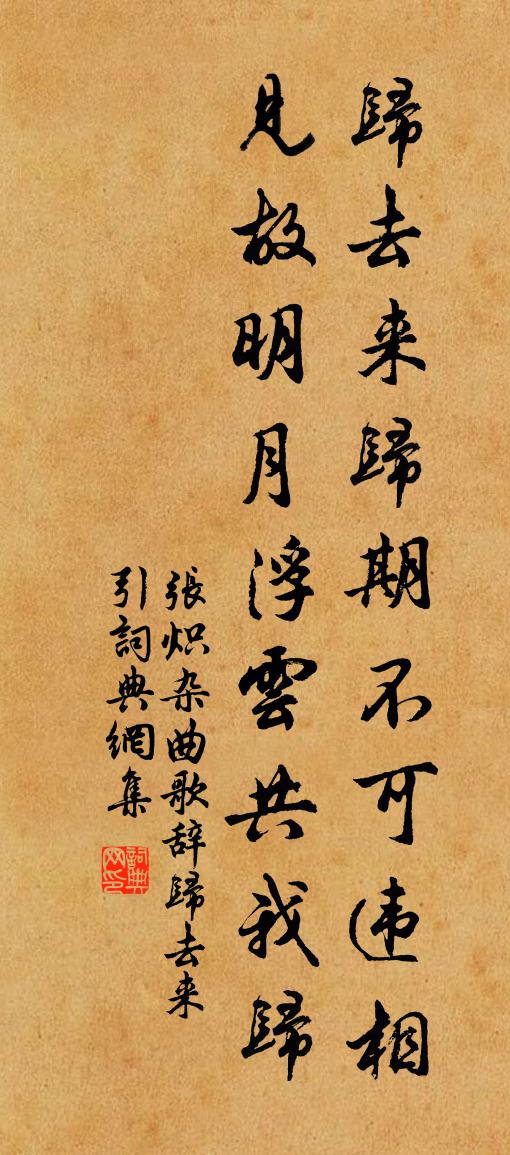 歸去来歸期不可违相
見故明月浮雲共我歸
張炽杂曲歌辞歸去来
引詞典網集
詞典网印